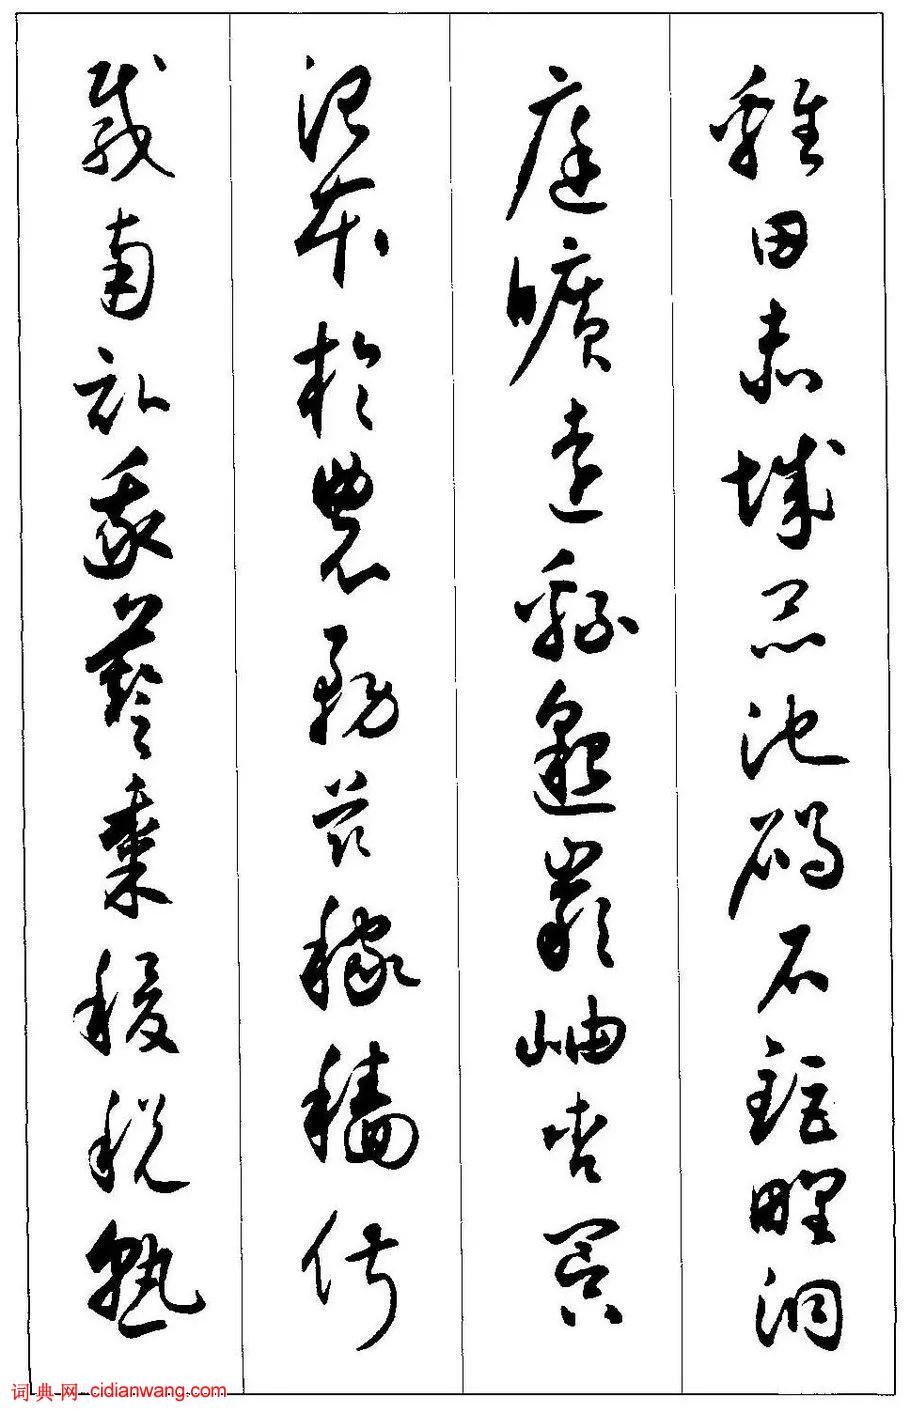 雞田赤城昆池碣石鉅野洞
庭曠遠緜邈巖岫杳冥
治本於農務茲稼穡俶
載南畝我藝黍稷稅熟
词典网-cidianwang.com